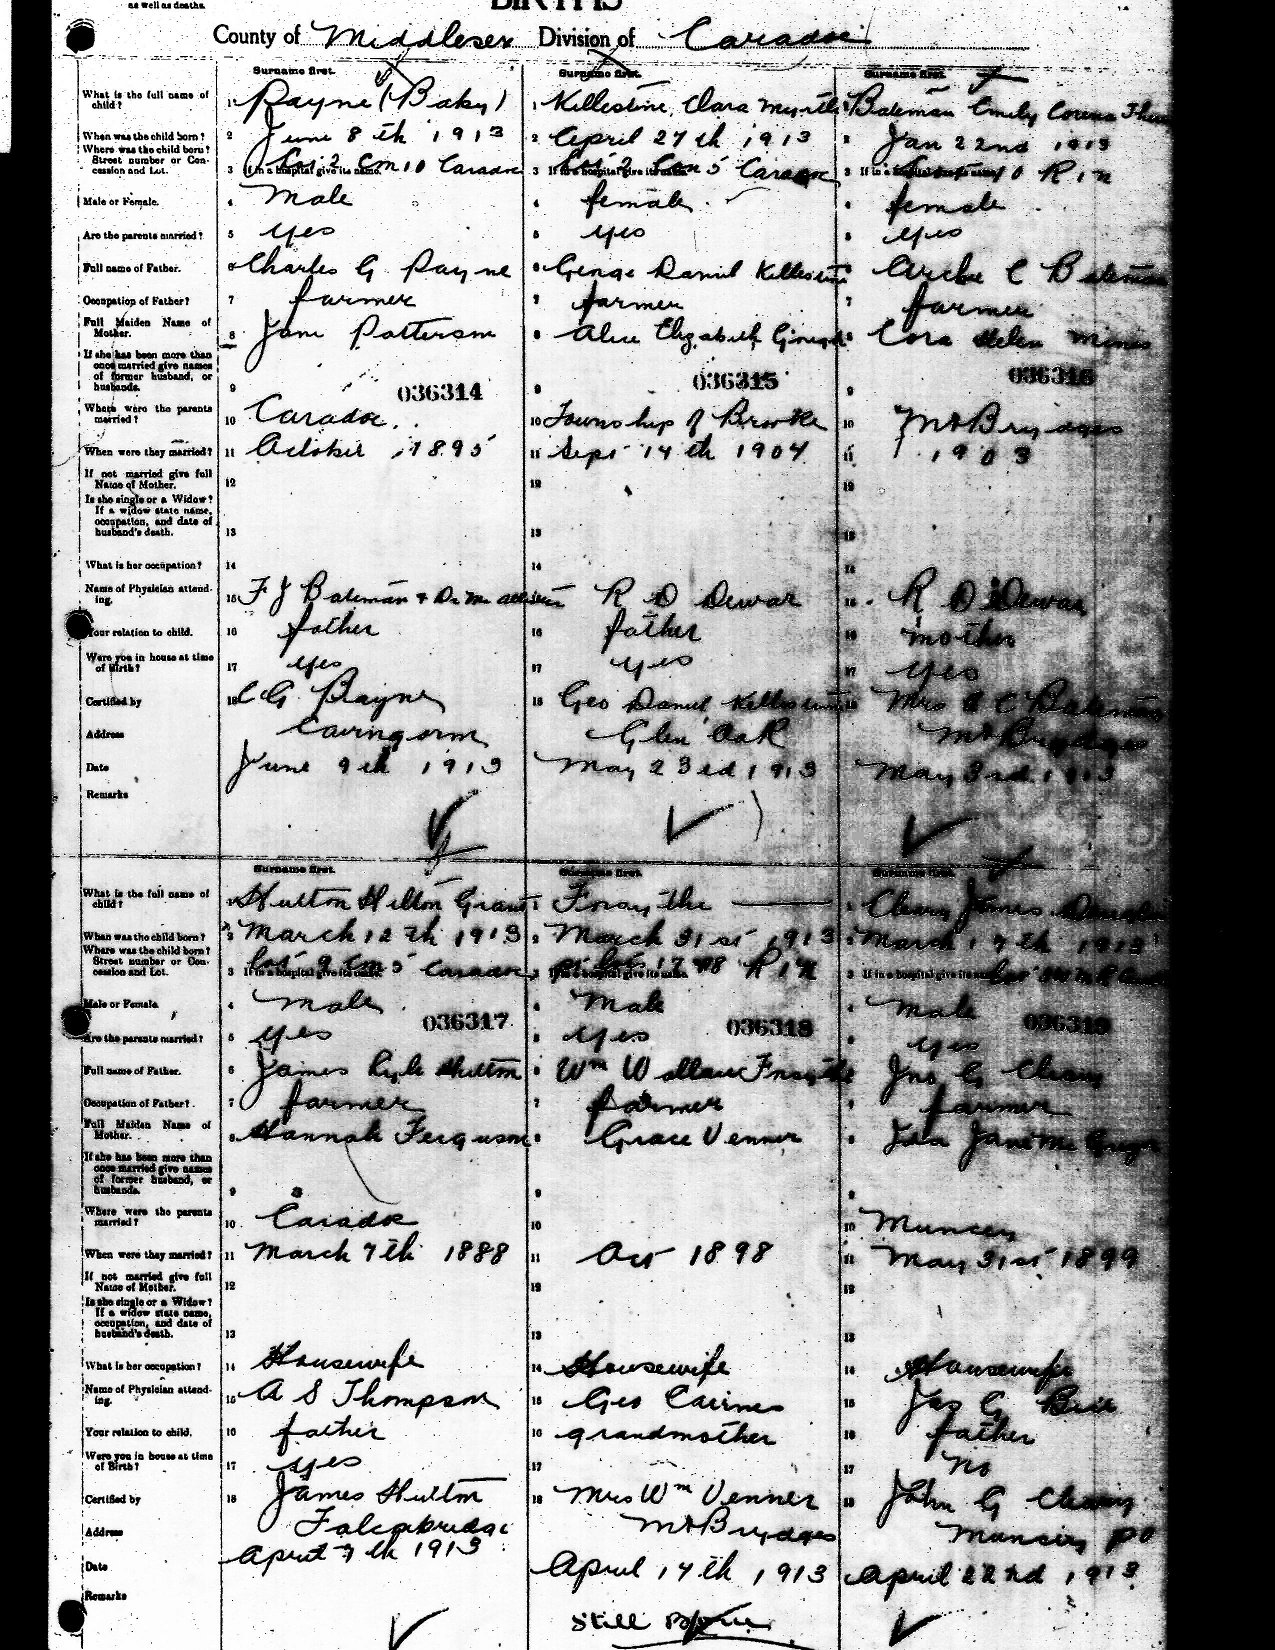 as well as deaths.
BIRTHS
County of Middlesex Division of Caradoc
Surname first. Surname first. Surname first.
What is the full name of child? 1 Payne (Baby) 1 Killestine, Clara Myrtle 1 Bateman Emily Corena
When was the child born? 2 June 8th 1913 2 April 27th 1913 2 Jan 22nd 1913
Where was the child born? Street number or Concession and Lot. 3 If in a hospital give its name. Lot 2 Con 10 Caradoc 3 If in a hospital give its name. Lot 2 Con 5 Caradoc 3 If in a hospital give its name. R 1 N
Male or Female. 4 Male 4 female 4 female
Are the parents married? 5 yes 5 yes 5 yes
Full name of Father. 6 Charles G Payne 6 George Daniel Killestine 6 Archie C Bateman
Occupation of Father? 7 farmer 7 farmer 7 farmer
Full Maiden Name of Mother. 8 Jane Patterson 8 Alice Elizabeth 8 Cora Helen
If she has been more than once married give names of former husband, or husbands. 9 036314 9 036315 9 036316
Where were the parents married? 10 Caradoc 10 Township of Brooke 10 Mt Brydges
When were they married? 11 October 1895 11 Sept 14th 1904 11 1903
If not married give full Name of Mother. 12 12 12
Is she single or a Widow? If a widow state name, occupation, and date of husband's death. 13 13 13
What is her occupation? 14 14 14
Name of Physician attending. 15 F J Bateman & Dr 15 R D Dewar 15 R D Dewar
Your relation to child. 16 father 16 father 16 mother
Were you in house at time of Birth? 17 yes 17 yes 17 yes
Certified by 18 C G Payne 18 Geo Daniel Killestine 18 Mrs A C Bateman
Address Cairngorm Glen Oak Mt Brydges
Date June 9th 1913 May 23rd 1913 May 3rd 1913
Remarks
Surname first. Surname first. Surname first.
What is the full name of child? 1 Hutton Hilton Grant 1 Forsythe 1 Cleary James Douglas
When was the child born? 2 March 12th 1913 2 March 31st 1913 2 March 17th 1913
Where was the child born? Street number or Concession and Lot. 3 If in a hospital give its name. Lot 9 Con 5 Caradoc 3 If in a hospital give its name. pt Lot 17 R 1 N 3 If in a hospital give its name. Lot
Male or Female. 4 Male 4 Male 4 male
036317 036318 036319
Are the parents married? 5 yes 5 yes 5 yes
Full name of Father. 6 James Lyle Hutton 6 Wm Wallace Forsythe 6 Jno G Cleary
Occupation of Father? 7 farmer 7 farmer 7 farmer
Full Maiden Name of Mother. 8 Hannah Ferguson 8 Grace Venner 8 Ida Jane McGregor
If she has been more than once married give names of former husband, or husbands. 9 9 9
Where were the parents married? 10 Caradoc 10 10 Muncey
When were they married? 11 March 7th 1888 11 Oct 1898 11 May 31st 1899
If not married give full Name of Mother. 12 12 12
Is she single or a Widow? If a widow state name, occupation, and date of husband's death. 13 13 13
What is her occupation? 14 Housewife 14 Housewife 14 Housewife
Name of Physician attending. 15 A S Thompson 15 Geo Cairnes 15 Jas G
Your relation to child. 16 father 16 grandmother 16 father
Were you in house at time of Birth? 17 yes 17 17 No
Certified by 18 James Hutton 18 Mrs Wm Venner 18 John G Cleary
Address Falconbridge Mt Brydges Muncey PO
Date April 7th 1913 April 14th 1913 April 22nd 1913
Remarks Still Born